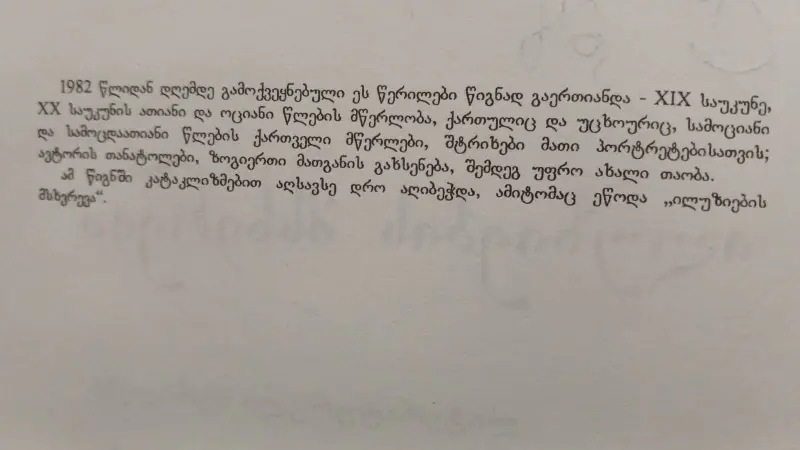 1982 წლიდან დღემდე გამოქვეყნებული ეს წერილები წიგნად გაერთიანდა - XIX საუკუნე,
XX საუკუნის ათიანი და ოციანი წლების მწერლობა, ქართულიც და უცხოურიც, სამოციანი
და სამოცდაათიანი წლების ქართველი მწერლები, შტრიხები მათი პორტრეტებისათვის;
ავტორის თანატოლები, ზოგიერთი მათგანის გახსენება, შემდეგ უფრო ახალი თაობა.
ამ წიგნში კატაკლიზმებით აღსავსე დრო აღიბეჭდა, ამიტომაც ეწოდა „ილუზიების
მსხვრევა“.